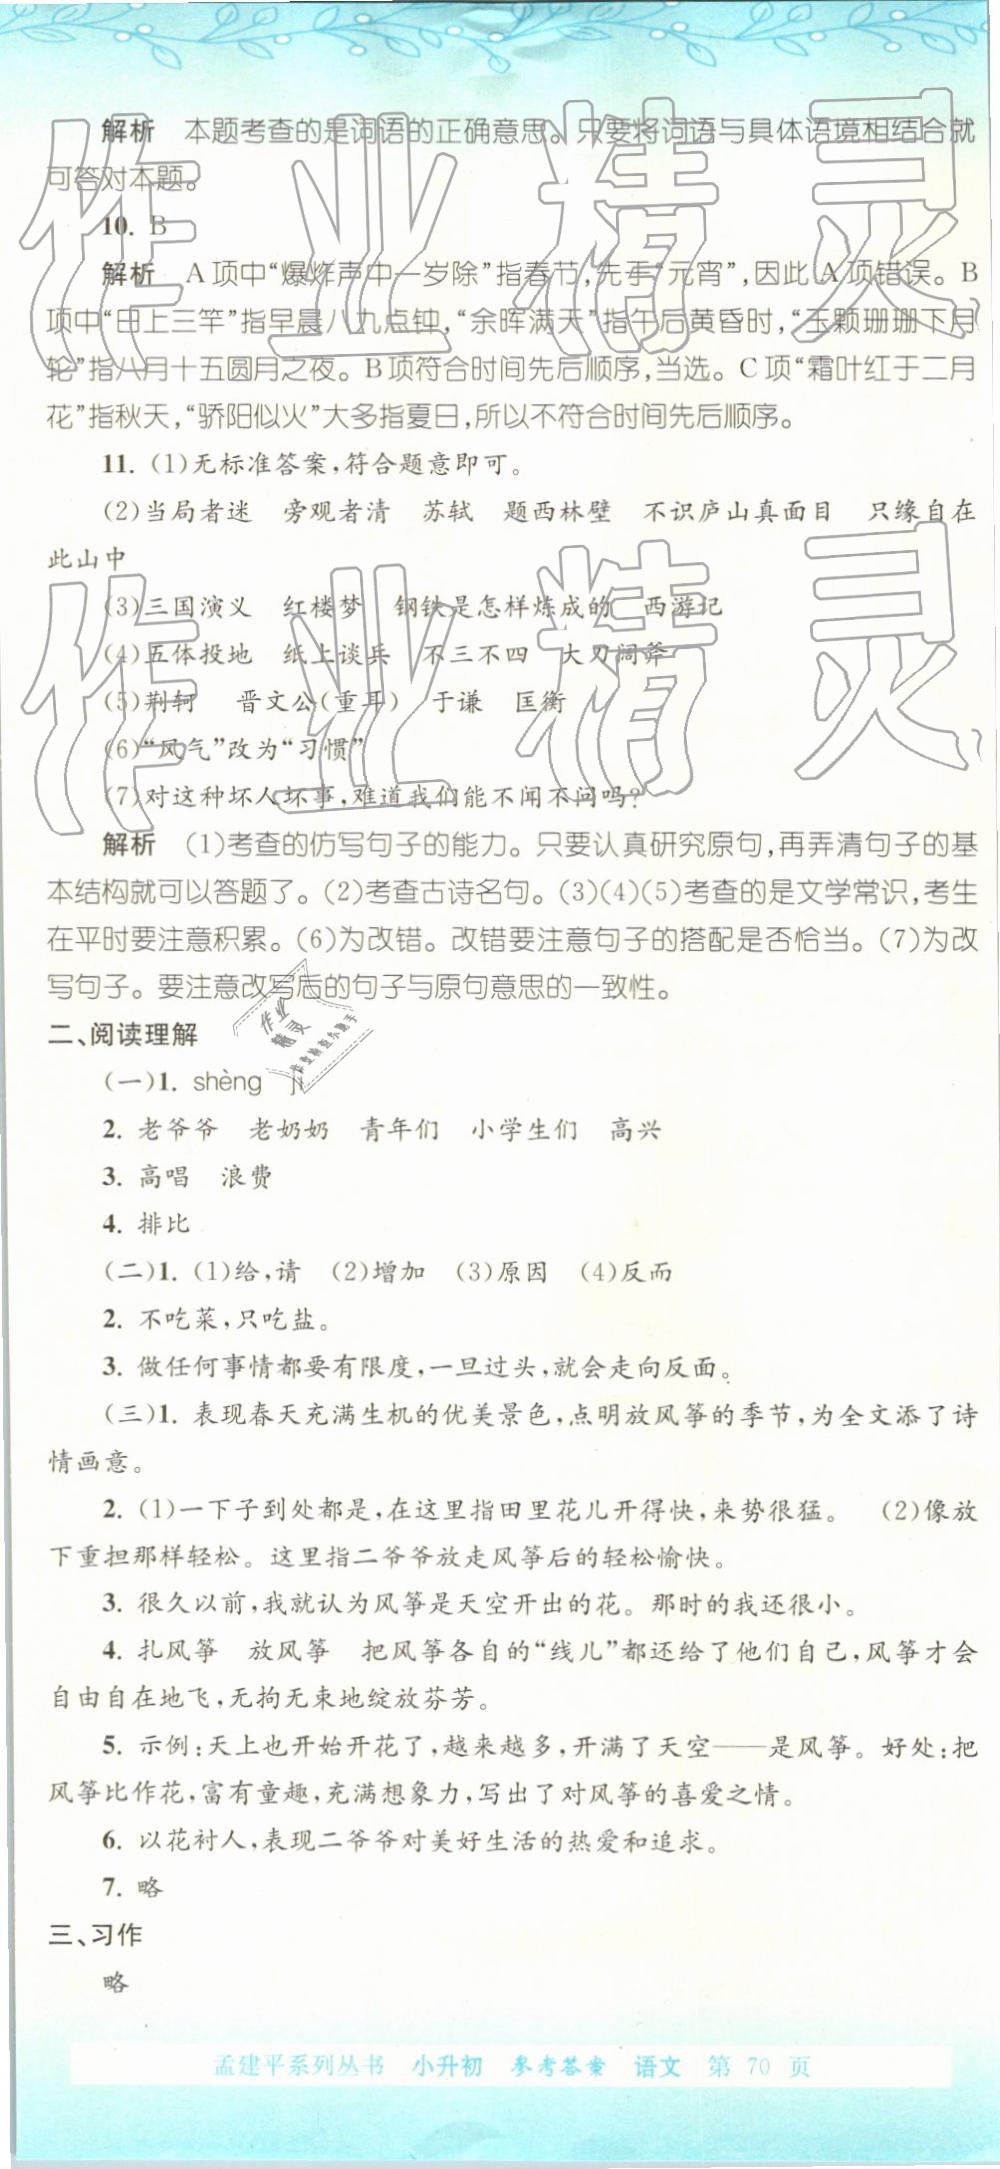 解析 本题考查的是词语的正确意思。只要将词语与具体语境相结合就
可答对本题。
10. B
解析 A项中“爆炸声中一岁除”指春节,先于“元宵”,因此A项错误。B
项中“日上三竿”指早晨八九点钟,“余晖满天”指午后黄昏时,“玉颗珊珊下月
轮”指八月十五圆月之夜。B项符合时间先后顺序,当选。C项“霜叶红于二月
花”指秋天,“骄阳似火”大多指夏日,所以不符合时间先后顺序。
11. (1)无标准答案,符合题意即可。
(2)当局者迷 旁观者清 苏轼 题西林壁 不识庐山真面目 只缘自在
此山中
(3)三国演义 红楼梦 钢铁是怎样炼成的 西游记
(4)五体投地 纸上谈兵 不三不四 大刀阔斧
(5)荆轲 晋文公(重耳) 于谦 匡衡
(6)“风气”改为“习惯”
(7)对这种坏人坏事,难道我们能不闻不问吗?
解析 (1)考查的仿写句子的能力。只要认真研究原句,再弄清句子的基
本结构就可以答题了。(2)考查古诗名句。(3)(4)(5)考查的是文学常识,考生
在平时要注意积累。(6)为改错。改错要注意句子的搭配是否恰当。(7)为改
写句子。要注意改写后的句子与原句意思的一致性。
二、阅读理解
(一)1. shèng jì
2. 老爷爷 老奶奶 青年们 小学生们 高兴
3. 高唱 浪费
4. 排比
(二)1. (1)给,请 (2)增加 (3)原因 (4)反而
2. 不吃菜,只吃盐。
3. 做任何事情都要有限度,一旦过头,就会走向反面。
(三)1. 表现春天充满生机的优美景色,点明放风筝的季节,为全文添了诗
情画意。
2. (1)一下子到处都是,在这里指田里花儿开得快,来势很猛。 (2)像放
下重担那样轻松。这里指二爷爷放走风筝后的轻松愉快。
3. 很久以前,我就认为风筝是天空开出的花。那时的我还很小。
4. 扎风筝 放风筝 把风筝各自的“线儿”都还给了他们自己,风筝才会
自由自在地飞,无拘无束地绽放芬芳。
5. 示例:天上也开始开花了,越来越多,开满了天空——是风筝。好处:把
风筝比作花,富有童趣,充满想象力,写出了对风筝的喜爱之情。
6. 以花衬人,表现二爷爷对美好生活的热爱和追求。
7. 略
三、习作
略
孟建平系列丛书 小升初 参考答案 语文 第 70 页
作业精灵
作业精灵
作业
精灵